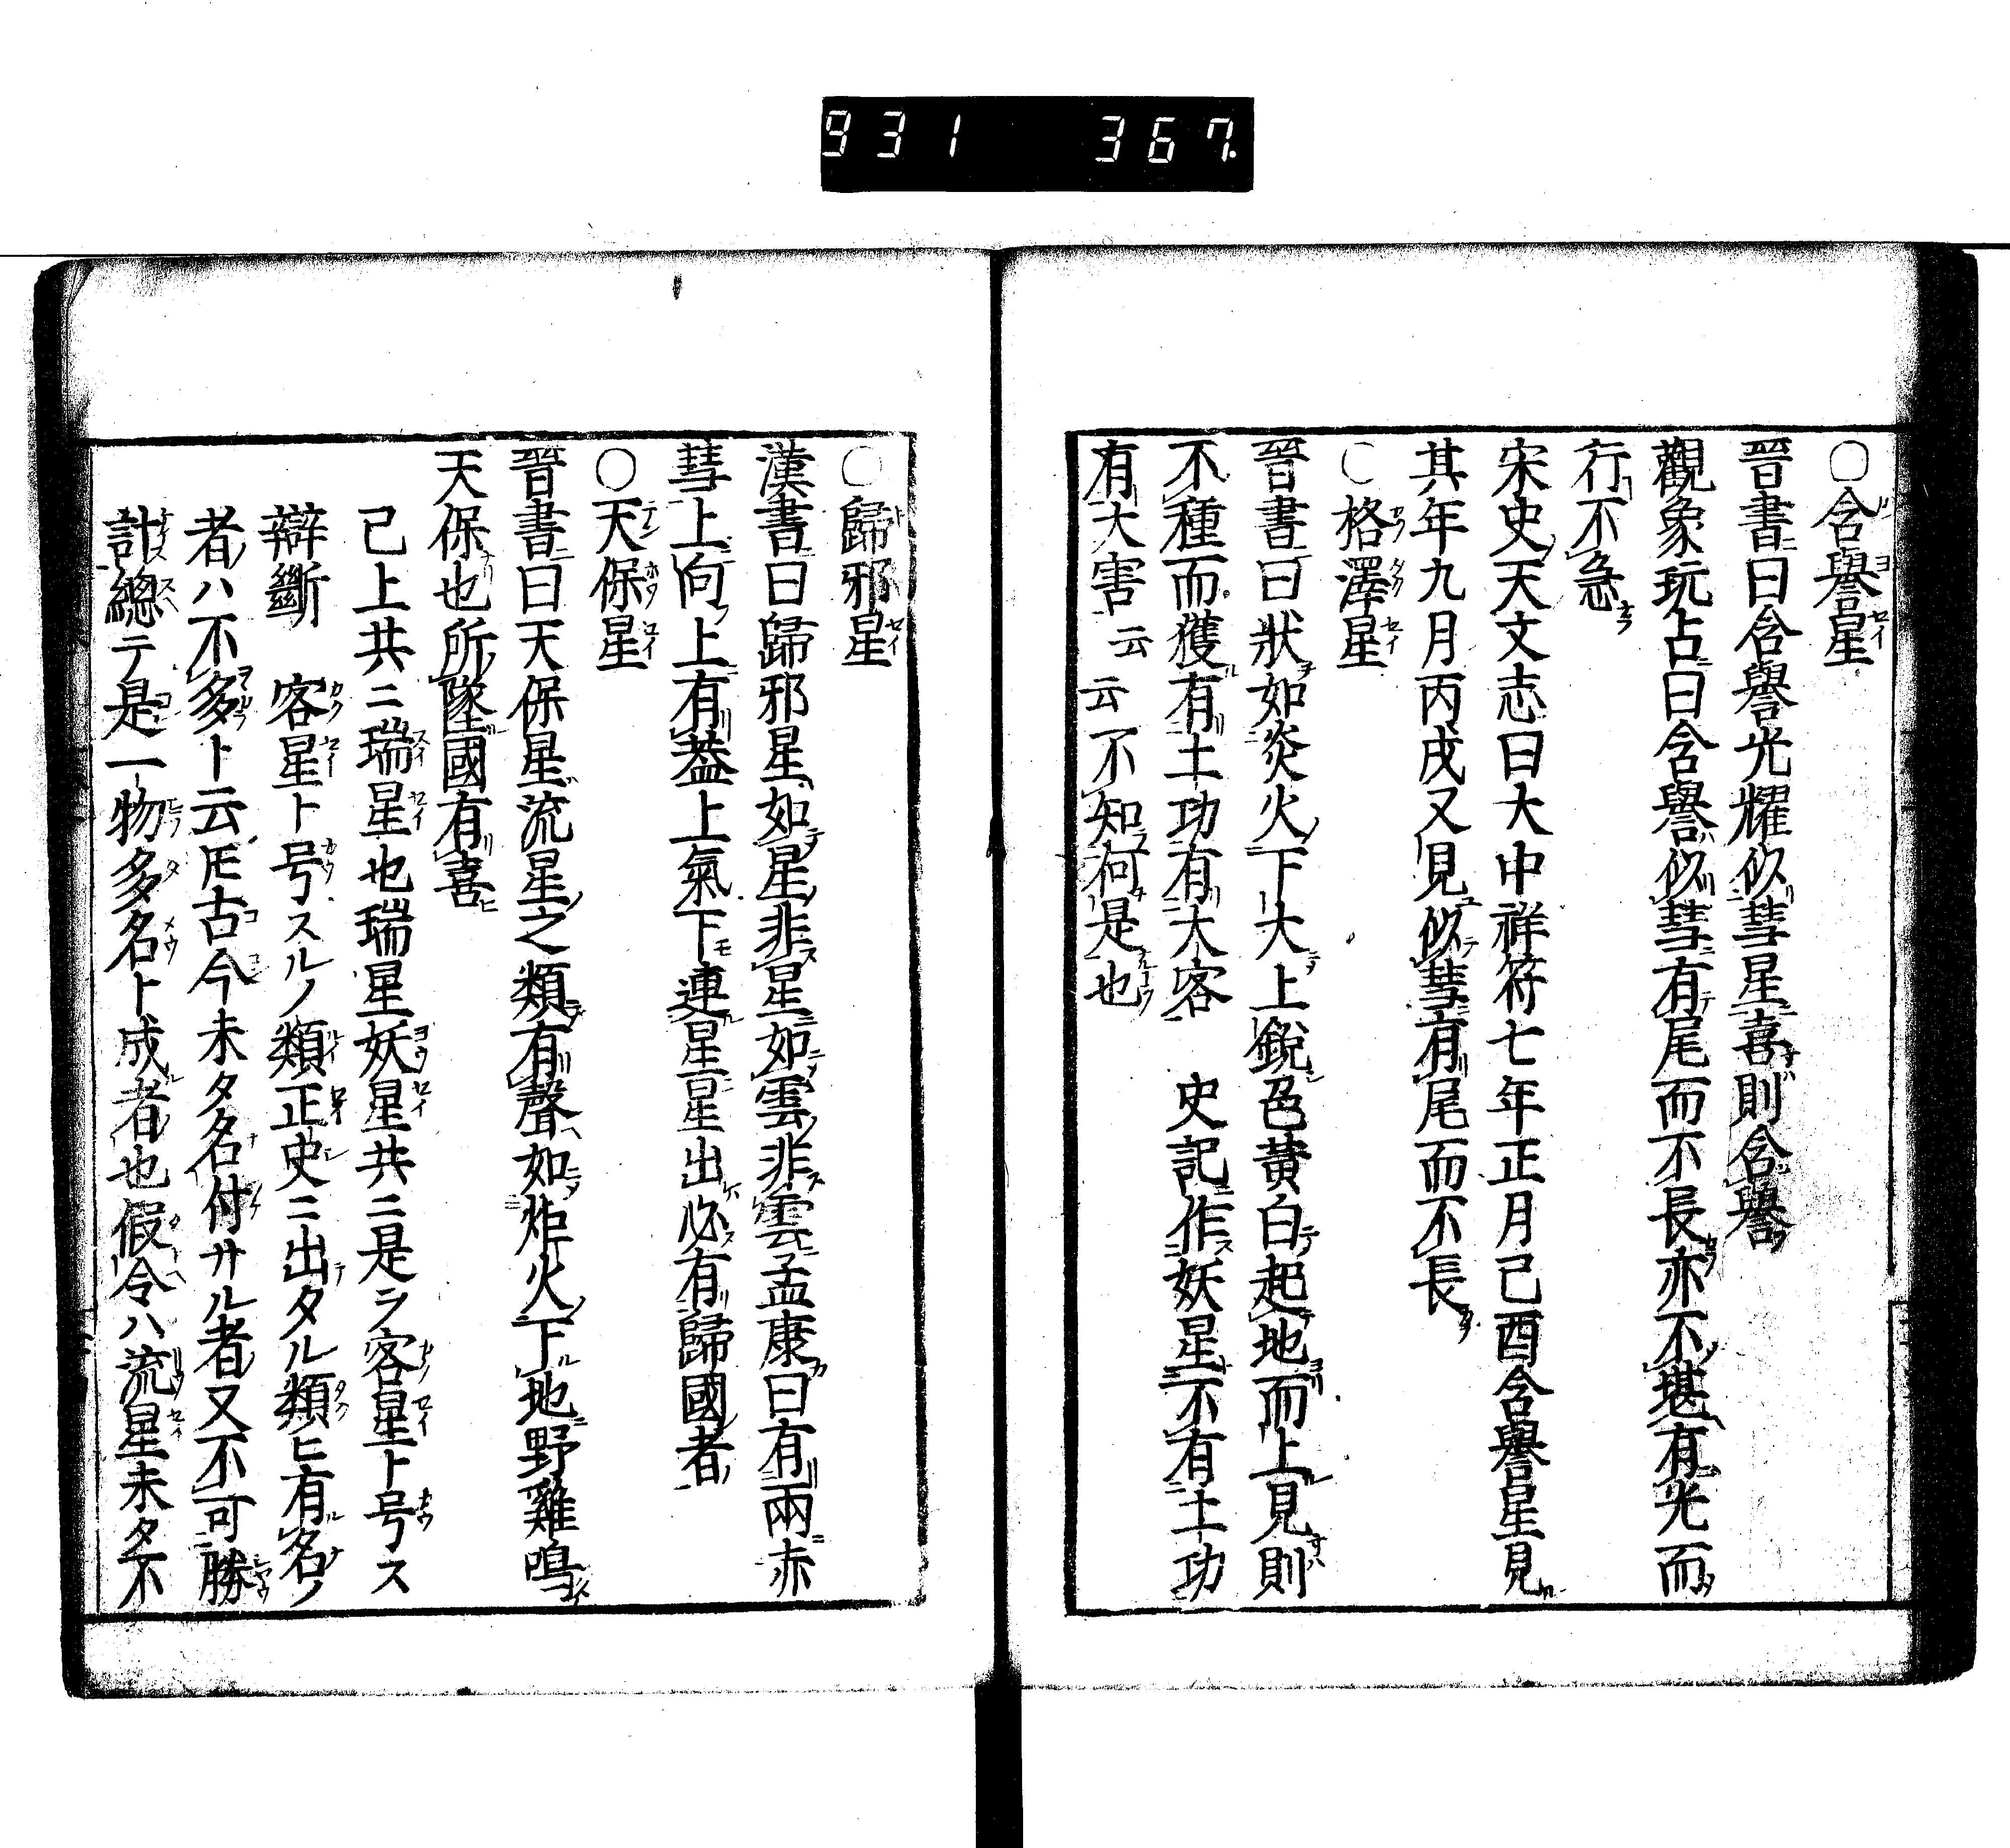 931 367.
○含譽星
晉書曰含譽光耀似彗星喜則含譽
觀象玩占曰含譽似彗有尾而不長亦不堪有光而
行不急
宋史天文志曰大中祥符七年正月己酉含譽星見
其年九月丙戌又見似彗有尾而不長
○格澤星
晉書曰狀如炎火下大上銳色黄白起地而上見則
不種而獲有土功有大客 史記作妖星不有土功
有大害云云不知何是也
○歸邪星
漢書曰歸邪星如星非星如雲非雲孟康曰有兩赤
彗上向上有葢上氣下連星星出必有歸國者
○天保星
晉書曰天保星流星之類有聲如炸火下地野雞鳴
天保也所墜國有喜
己上共ニ瑞星也瑞星妖星共ニ是ヲ客星ト号ス
辯斷 客星ト号スルノ類正史ニ出タル類ヒ有名ノ
者ハ不多ト云𪜈古今未タ名付サル者又不可勝
計總テ是一物多名ト成者也假令ハ流星未タ不